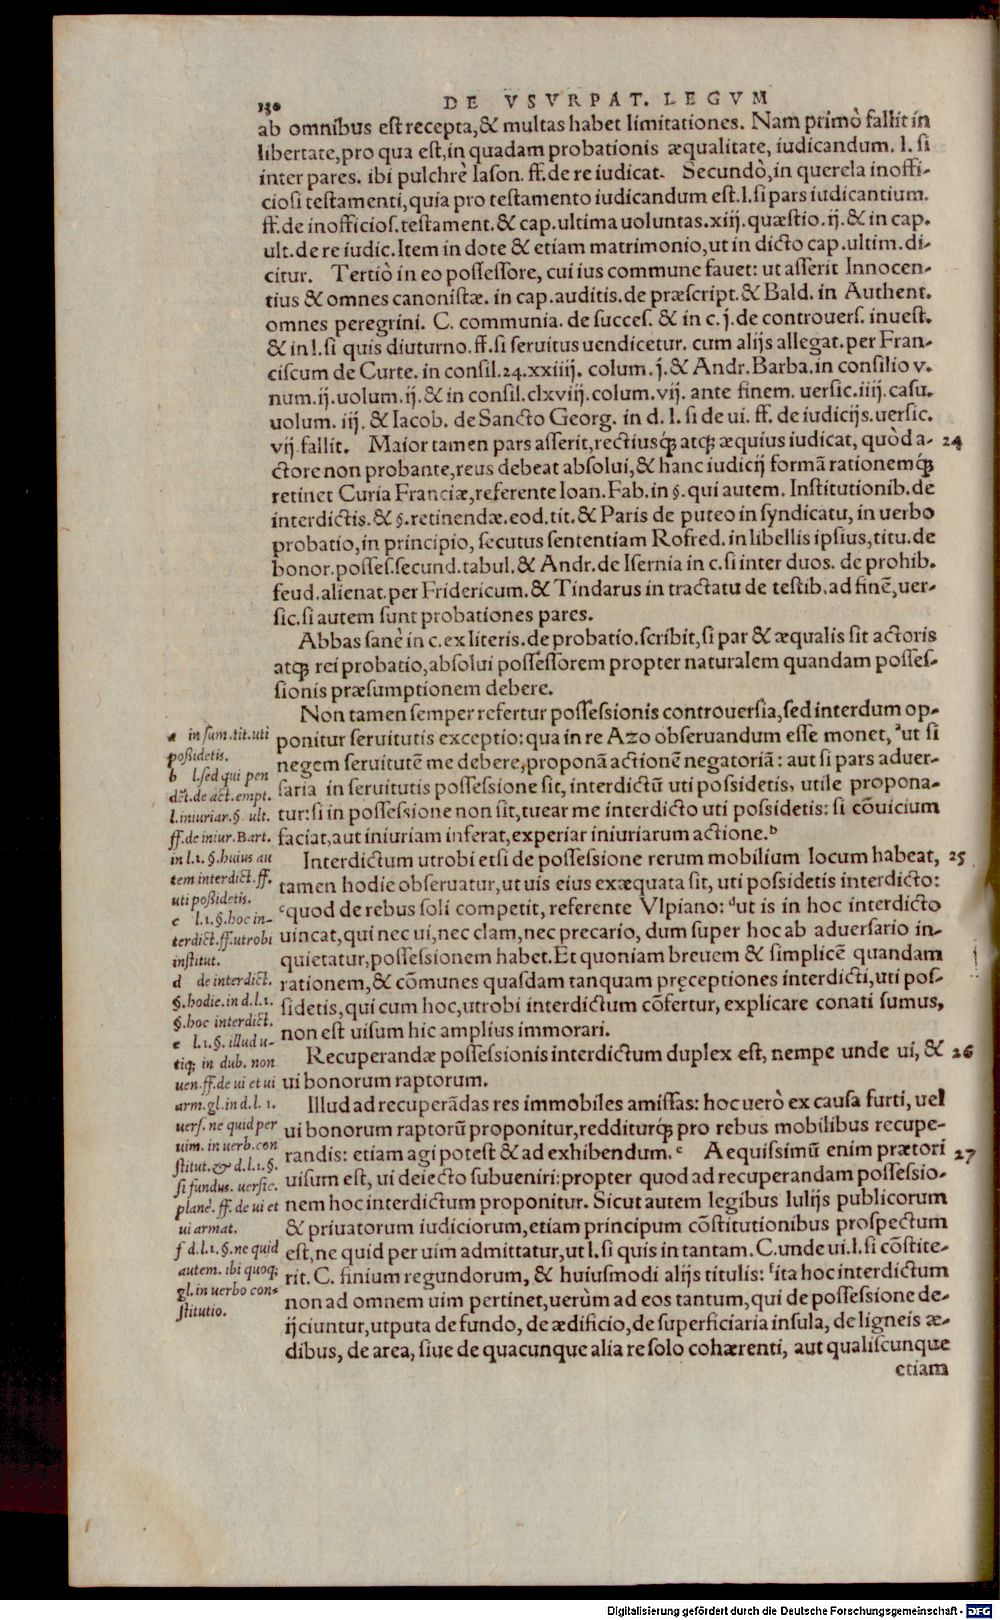 130
DE VSVRPAT. LEGVM
ab omnibus est recepta,& multas habet limitationes. Nam primò fallit in
libertate,pro qua est,in quadam probationis æqualitate, iudicandum. l. si
inter pares. ibi pulchrè Iason. ff. de re iudicat. Secundò,in querela inoffi-
ciosi testamenti,quia pro testamento iudicandum est.l.si pars iudicantium.
ff.de inofficios.testament.& cap.ultima uoluntas.xiij.quæstio.ij.& in cap.
ult.de re iudic.Item in dote & etiam matrimonio,ut in dicto cap.ultim.di-
citur. Tertiò in eo possessore, cui ius commune fauet: ut asserit Innocen-
tius & omnes canonistæ. in cap.auditis.de præscript.& Bald. in Authent.
omnes peregrini. C. communia. de succes. & in c. j. de controuers. inuest.
& in l.si quis diuturno.ff.si seruitus uendicetur. cum alijs allegat.per Fran-
ciscum de Curte. in consil.24.xxiiij. colum. j. & Andr. Barba.in consilio v.
num.ij.uolum.ij.& in consil.clxviij.colum.vij. ante finem. uersic.iiij.casu.
uolum. iij. & Iacob. de Sancto Georg. in d. l. si de ui. ff. de iudicijs.uersic.
vij.fallit. Maior tamen pars asserit,rectiusq́ꝫ atqꝫ æquius iudicat, quòd a- 24
ctore non probante,reus debeat absolui,& hanc iudicij formã rationemq́ꝫ
retinet Curia Franciæ,referente Ioan. Fab. in §. qui autem. Institutionib.de
interdictis. & §.retinendæ.eod.tit.& Paris de puteo in syndicatu, in uerbo
probatio,in principio, secutus sententiam Rofred. in libellis ipsius,titu.de
bonor.posses.secund.tabul.& Andr.de Isernia in c.si inter duos. de prohib.
feud.alienat.per Fridericum.& Tindarus in tractatu de testib.ad finẽ,uer-
sic.si autem sunt probationes pares.
Abbas sanè in c.ex literis.de probatio.scribit,si par & æqualis sit actoris
atqꝫ rei probatio,absolui possessorem propter naturalem quandam posses-
sionis præsumptionem debere.
Non tamen semper refertur possessionis controuersia,sed interdum op-
ponitur seruitutis exceptio:qua in re Azo obseruandum esse monet, ᵃut si
negem seruitutẽ me debere,proponã actionẽ negatoriã: aut si pars aduer-
saria in seruitutis possessione sit, interdictũ uti possidetis, utile propona-
tur:si in possessione non sit,tuear me interdicto uti possidetis: si cõuicium
faciat,aut iniuriam inferat,experiar iniuriarum actione.ᵇ
Interdictum utrobi etsi de possessione rerum mobilium locum habeat, 25
tamen hodie obseruatur,ut uis eius exæquata sit, uti possidetis interdicto:
ᶜquod de rebus soli competit, referente Vlpiano: ᵈut is in hoc interdicto
uincat,qui nec ui,nec clam,nec precario, dum super hoc ab aduersario in-
quietatur,possessionem habet.Et quoniam breuem & simplicẽ quandam
rationem,& cõmunes quasdam tanquam pręceptiones interdicti,uti pos-
sidetis,qui cum hoc,utrobi interdictum cõfertur, explicare conati sumus,
non est uisum hic amplius immorari.
Recuperandæ possessionis interdictum duplex est, nempe unde ui, & 26
ui bonorum raptorum.
Illud ad recuperãdas res immobiles amissas: hoc uerò ex causa furti, uel
ui bonorum raptorũ proponitur,redditurq́ꝫ pro rebus mobilibus recupe-
randis: etiam agi potest & ad exhibendum.ᵉ Aequissimũ enim prætori 27
uisum est, ui deiecto subueniri:propter quod ad recuperandam possessio-
nem hoc interdictum proponitur. Sicut autem legibus Iulijs publicorum
& priuatorum iudiciorum,etiam principum cõstitutionibus prospectum
est,ne quid per uim admittatur,ut l.si quis in tantam.C.unde ui.l.si cõstite-
rit. C. finium regundorum, & huiusmodi alijs titulis: ᶠita hoc interdictum
non ad omnem uim pertinet,uerùm ad eos tantum,qui de possessione de-
ijciuntur,utputa de fundo, de ædificio,de superficiaria insula, de ligneis æ-
dibus, de area, siue de quacunque alia re solo cohærenti, aut qualiscunque
etiam
a in sum.tit.uti
possidetis.
b l.sed qui pen
dẽt.de act.empt.
l.iniuriar.§ ult.
ff.de iniur.Bart.
in l.1. §.huius au
tem interdict.ff.
uti possidetis.
c l.1.§.hoc in-
terdict.ff.utrobi
institut.
d de interdict.
§.hodie.in d.l.1.
§.hoc interdict.
e l.1.§.illud u-
tiqꝫ in dub. non
uen.ff.de ui et ui
arm.gl.in d.l. 1.
uers. ne quid per
uim. in uerb.con
stitut.& d.l.1.§.
si fundus. uersic.
planè. ff. de ui et
ui armat.
f d.l.1.§.ne quid
autem. ibi quoqꝫ
gl.in uerbo con-
stitutio.
Digitalisierung gefördert durch die Deutsche Forschungsgemeinschaft - DFG